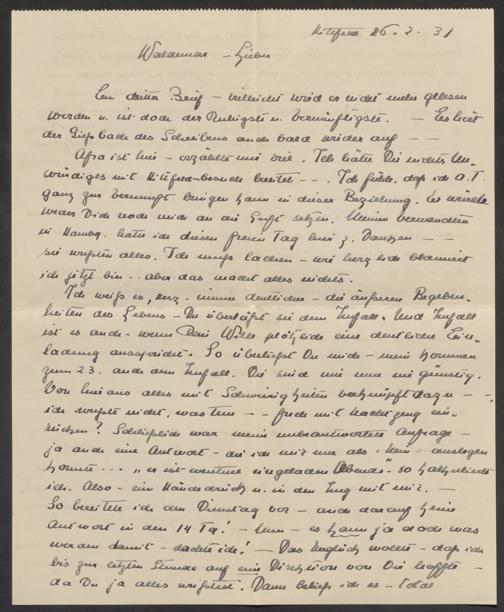 Hitzfeld 26. 2. 31
Waldemar - Lieber
Ein dritter Brief - vielleicht wird er nicht mehr gelesen
werden u. ist doch der Ruhigste u. Vernünftigste. — Es hört
der Gießbach des Schreibens auch bald wieder auf — —
Afra ist hier - erzählte mir viel. Ich hätte Dir nichts Un-
würdiges mit Besuch bereitet - - . Ich fühle, daß ich A. T.
ganz zur Vernunft bringen kann in dieser Beziehung. Er würde
weder Dich noch mich an die Luft setzen. Meinen Verwandten
in Hambg. hatte ich diesen freien Tag hier z. — —
sie wußten alles. Ich muß lachen - wie blamiert
ich jetzt bin - - aber das macht alles nichts.
Ich weiß es, - immer deutlicher - die äußeren Begeben-
heiten des Lebens - Du überläßt sie dem Zufall. Und Zufall
ist es auch - wenn Dein Wille plötzlich eine deutliche Ein-
ladung ausspricht. So überließt Du mich - mein Kommen
zum 23. auch dem Zufall. Die sind mir nun nie günstig.
Von hier aus alles mit Schwierigkeiten verknüpft dazu - -,
ich wußte nicht, was tun - - früh mit Nachtzug ein-
rücken? Schließlich war meine unbeantwortete Anfrage -
ja auch eine Antwort - die ich mir nur als "Nein" auslegen
konnte... "er ist eventuell eingeladen Abends -
ich. Also - ein Händedruck u. in den Zug mit mir. —
So bereitete ich den Dienstag vor - auch darauf keine
Antwort in den 14 Tg! - Nun - es kann ja doch was
werden damit - dachte ich! — Das Unglück wollte - daß ich
bis zur letzten Stunde auf eine Direktion von Dir hoffte -
da Du ja alles wußtest. Dann beließ ich es -